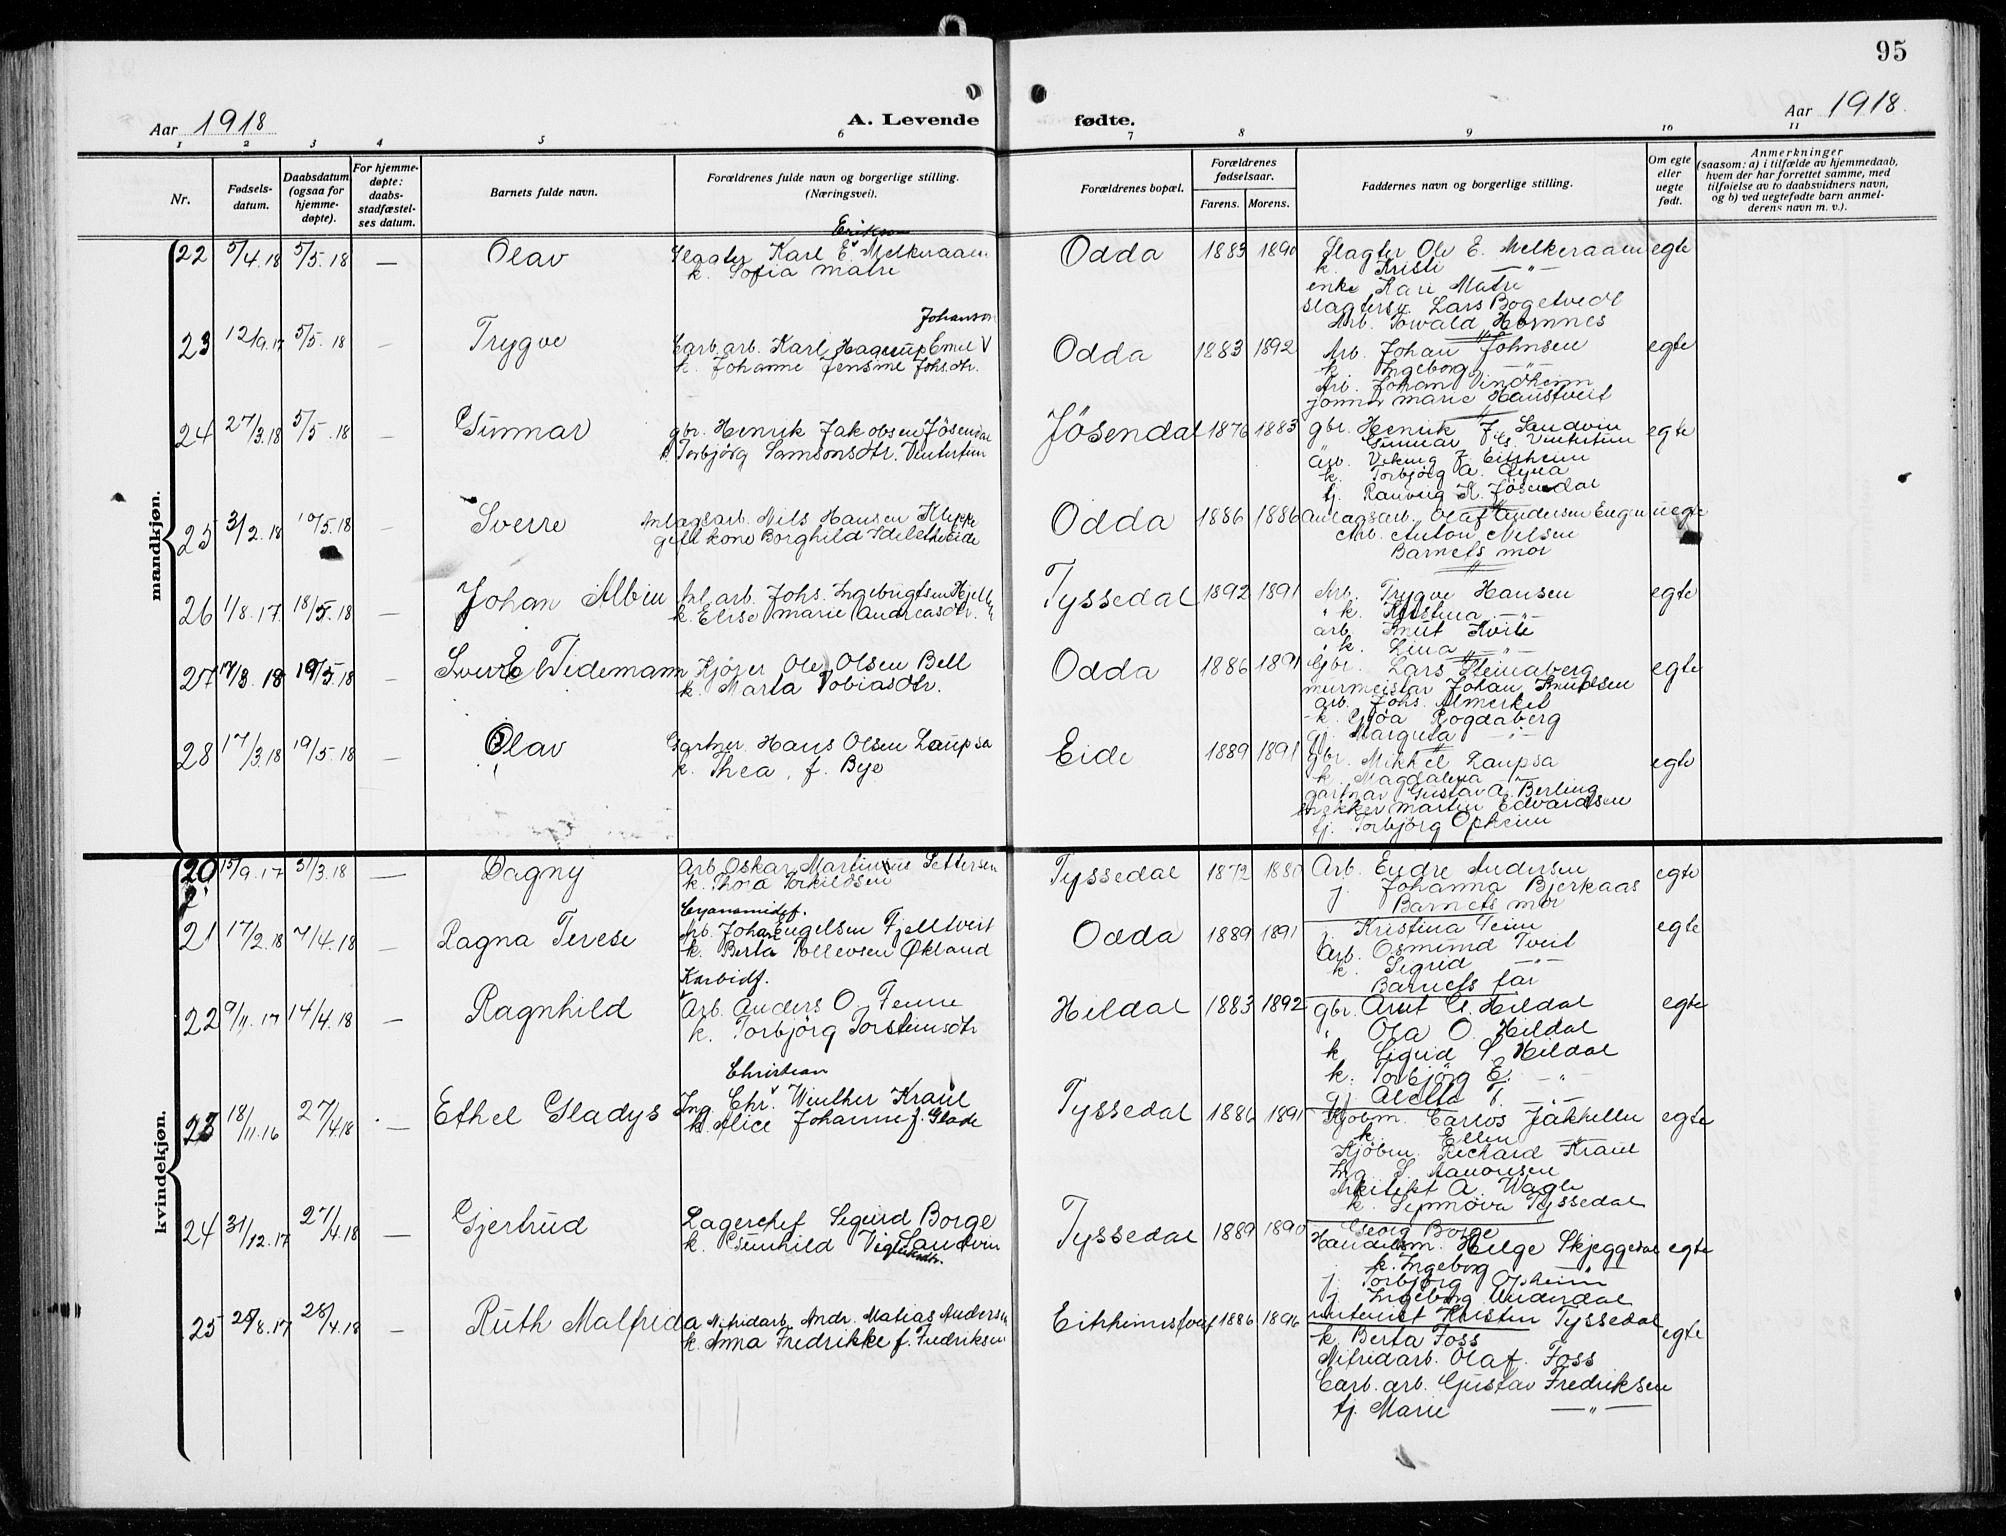 95
Aar 1918
A. Levende
fødte.
Aar 1918.
1 2 3 4 5 6 7 8 9 10 11
Nr.
Fødsels-
datum.
Daabsdatum
(ogsaa for
hjemme-
døpte).
For hjemme-
døpte:
daabs-
stadfæstel-
ses datum.
Barnets fulde navn.
Forældrenes fulde navn og borgerlige stilling.
(Næringsvei).
Forældrenes bopæl.
Forældrenes
fødselsaar.
Farens. Morens.
Faddernes navn og borgerlige stilling.
Om egte
eller
uegte
født.
Anmerkninger
(saasom: a) i tilfælde av hjemmedaab,
hvem der har forrettet samme, med
tilføielse av to daabsvidners navn,
og b) ved uegtefødte barn anmel-
derens navn m. v.).
mandkjøn.
22 5/4.18 5/5.18 — Olav
Slagter Karl E. Melkeraaen
k. Sofia Matre
Odda 1883 1890
Slagter Ole E. Melkeraaen egte
k. Kristi —"—
enke Kari Matre
Lars Bogetvedt
Arb. Torvald Hamnes
23 12/9.17 5/5.18 — Trygve
Johanson
Carb. arb. Karl Hagerup Emil V
k. Johanne Jensine Johsdtr.
Odda 1883 1892
Arb. Johan Johnsen egte
k. Ingeborg —"—
Arb. Johan Vindheim
Marie Haustveit
24 27/3.18 5/5.18 — Gunnar
gbr. Henrik Jakobsen Jøsendal
k. Torbjørg Samsonsdtr. Vintertun
Jøsendal 1876 1883
gbr. Henrik J. Sandvin egte
Gunnar Vintertun
Arb. Viking J. Eitrheim
k. Torbjørg A.
tj. Ranveig K. Jøsendal
25 3/2.18 10/5.18 — Sverre
Anlagsarb. Nils Hansen
gift kone Borghild
Odda 1886 1886
Anlagsarb. Olaf Andersen uegte
Arb. Anton Nilsen
Barnets mor
26 1/8.17. 18/5.18 — Johan Albin
Anl. arb. Johs. Ingebrigtsen
k. Elise Marie Andreasdtr.
Tyssedal 1892 1891
Arb. Trygve Hansen egte
" k. Kristina —"—
arb. Knut Kvite
" k. Lina —"—
27 17/3.18 19/5.18 — Sverre Tidemann
Kjører Ole Olsen Bell
k. Marta Tobiasdtr.
Odda 1886 1891
Gbr. Lars Steinaberg egte
murmeister Johan Knudsen
arb. Johs. Almerket
k. Gjøa Rogdaberg
Margreta —"—
28 17/3.18 19/5.18 — Olav
Gartner Hans Olsen Laupsa
k. Thea, f. Bye
Eide 1889 1891
Gbr. Mikkel Laupsa egte
k. Magdalena —"—
gartnar Gustav A. Berling
snekker Martin Edvardsen
tj. Torbjørg Opheim
kvindekjøn.
20 15/9.17 31/3.18 — Dagny
Arb. Oskar Martinius Pettersen
k. Thora Torkildsen
Tyssedal 1872 1880
Arb. Endre Andersen egte
j. Johanna Bjerkaas
Barnets mor
21 17/2.18 7/4.18 — Ragna Terese
Cyanamidf.
Arb. Johan Engelsen Fjelltveit
k. Berta Tollevsen Økland
Odda 1889 1891
j. Kristina Tein egte
Arb. Osmund Tveit
k. Sigrid —"—
Barnets far
22 9/11.17 14/4.18 — Ragnhild
Karbidf.
Arb. Anders O. Tenne
k. Torbjørg Torsteinsdtr
Hildal 1883 1892
gbr. Arnt G. Hildal egte
" Ola O. Hildal
k. Sigrid S. Hildal
k. Torbjørg E. —"—
gj. Aletta T. —"—
23 18/11.16 27/4.18 — Ethel Gladys
Christian
Ing. Chr. Winther Kraul
k. Alice Johanne f. Glade
Tyssedal 1886 1891
Kjøbm. Carlos Jakhelln egte
k. Ellen —"—
Kjøbm. Richard Kraul
Ing. S. Aanonsen
Arkitekt A. Wagle
k. Synnøva Tyssedal
24 31/12.17 27/4.18 — Gjertrud
Lagerchef Sigurd Borge
k. Gunhild Viglundtr. Sandvin
Tyssedal 1889 1890
Georg Borge
Handelsm. Helge Skjeggedal egte
k. Ingeborg —"—
j. Torbjørg Opheim
j. Ingeborg Underdal
25 28/8.17 28/4.18 — Ruth Malfrida
Nitridarb. Andr. Matias Andersen
k. Anna Fredrikke f. Fredriksen
Eitrheimstveit 1886 1896
Kristen Tyssedal egte
k. Berta Foss
Nitridarb. Olaf. Foss
Carb. arb. Gustav Fredriksen
tj. Marie —"—